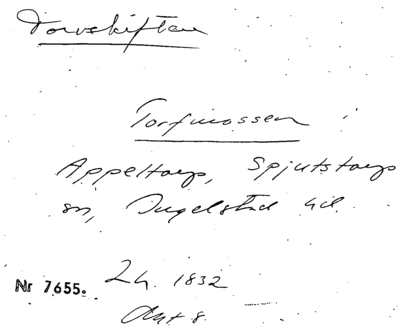 Torvskiften
Torfmossen
Appeltorp, Spjutstorp
sn, Ingelstad hd.
Nr 7655. Lh. 1832
Akt 8.